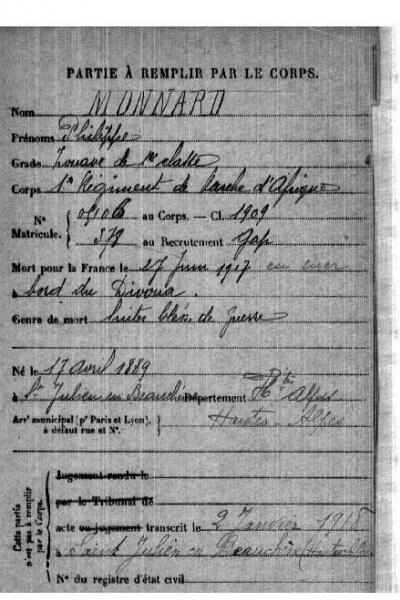 PARTIE À REMPLIR PAR LE CORPS.
Nom MONNARD
Prénoms Philippe
Grade Zouave de 1re classe
Corps 1er Régiment de Marche d'Afrique
N° Matricule. au Corps. — Cl. 1909
372 au Recrutement Gap
Mort pour la France le 27 Juin 1917 en mer
à bord du Divona.
Genre de mort suites bles. de guerre
Né le 17 avril 1889
à St Julien en Beauchêne Département Htes Alpes
Arrt municipal (pr Paris et Lyon), à défaut rue et N°. Hautes-Alpes
Cette partie n'est pas à remplir par le Corps.
Jugement rendu le
par le Tribunal de
acte ou jugement transcrit le 2 Janvier 1918
à Saint Julien en Beauchêne (Hautes-Alpes)
N° du registre d'état civil